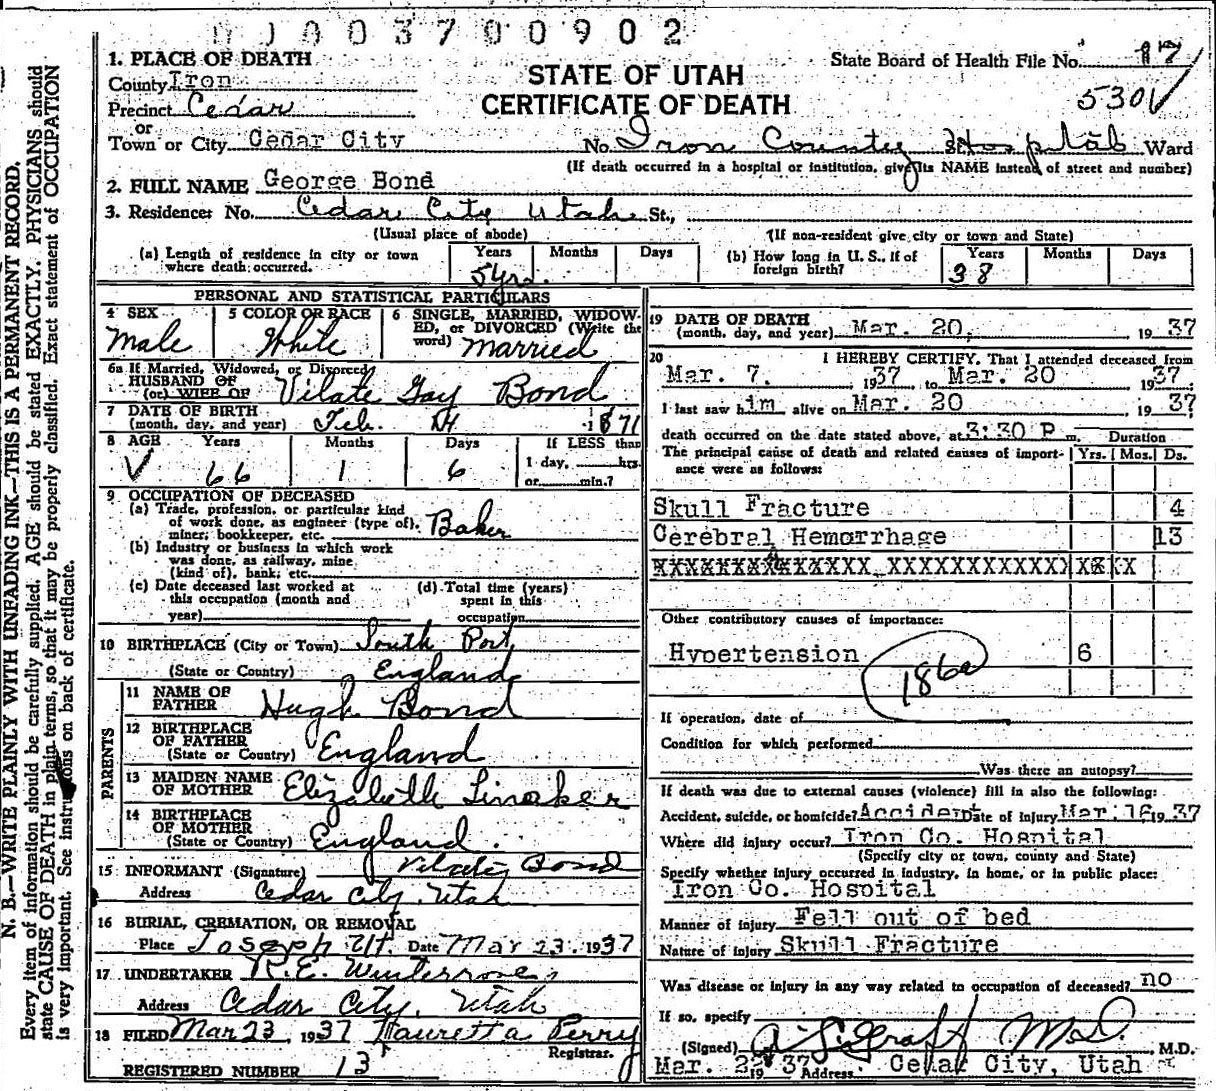 003700902
1. PLACE OF DEATH
State Board of Health File No. 17
County Iron
STATE OF UTAH
5301
Precinct Cedar
CERTIFICATE OF DEATH
or
Town or City Cedar City No. Iron County Hospital St. Ward
(If death occurred in a hospital or institution, give its NAME instead of street and number)
2. FULL NAME George Bond
3. Residence: No. Cedar City Utah St.,
(Usual place of abode) (If non-resident give city or town and State)
(a) Length of residence in city or town where death occurred. Years Months Days
5 yrs.
(b) How long in U. S., if of foreign birth? Years Months Days
38
PERSONAL AND STATISTICAL PARTICULARS
4 SEX 5 COLOR OR RACE 6 SINGLE, MARRIED, WIDOWED, or DIVORCED (Write the word)
Male White Married
6a If Married, Widowed, or Divorced
HUSBAND OF
(or) WIFE OF Vilate Gay Bond
7 DATE OF BIRTH
(month, day, and year) Feb. 14 1871
8 AGE Years Months Days If LESS than
66 1 6 1 day, hrs.
or min.?
9 OCCUPATION OF DECEASED
(a) Trade, profession, or particular kind
of work done, as engineer (type of), Baker
miner, bookkeeper, etc.
(b) Industry or business in which work
was done, as railway, mine
(kind of), bank, etc.
(c) Date deceased last worked at (d) Total time (years)
this occupation (month and spent in this
year) occupation
10 BIRTHPLACE (City or Town) South Port
(State or Country) England
PARENTS
11 NAME OF
FATHER Hugh Bond
12 BIRTHPLACE
OF FATHER
(State or Country) England
13 MAIDEN NAME
OF MOTHER Elizabeth Linaker
14 BIRTHPLACE
OF MOTHER
(State or Country) England.
15 INFORMANT (Signature) Vilate Bond
Address Cedar City, Utah
16 BURIAL, CREMATION, OR REMOVAL
Place Joseph Ut. Date Mar 23. 1937
17 UNDERTAKER R.E. Winterrose
Address Cedar City, Utah
18 FILED Mar 23, 1937 Lauretta Perry
Registrar.
REGISTERED NUMBER 13
19 DATE OF DEATH
(month, day, and year) Mar. 20, 1937
20 I HEREBY CERTIFY, That I attended deceased from
Mar. 7. 1937, to Mar. 20 1937.
I last saw him alive on Mar. 20, 1937
death occurred on the date stated above, at 3:30 P. m. Duration
The principal cause of death and related causes of importance were as follows: Yrs. Mos. Ds.
Skull Fracture 4
Cerebral Hemorrhage 13
Other contributory causes of importance:
Hypertension 6
186a
If operation, date of
Condition for which performed
Was there an autopsy?
If death was due to external causes (violence) fill in also the following:
Accident, suicide, or homicide? Accident Date of injury Mar. 16, 1937
Where did injury occur? Iron Co. Hospital
(Specify city or town, county and State)
Specify whether injury occurred in industry, in home, or in public place:
Iron Co. Hospital
Manner of injury Fell out of bed
Nature of injury Skull Fracture
Was disease or injury in any way related to occupation of deceased? no
If so, specify
(Signed) M.D. M.D.
Mar. 19 37 Address Cedar City, Utah
N. B.—WRITE PLAINLY WITH UNFADING INK—THIS IS A PERMANENT RECORD.
Every item of information should be carefully supplied. AGE should be stated EXACTLY. PHYSICIANS should
state CAUSE OF DEATH in plain terms, so that it may be properly classified. Exact statement of OCCUPATION
is very important. See instructions on back of certificate.